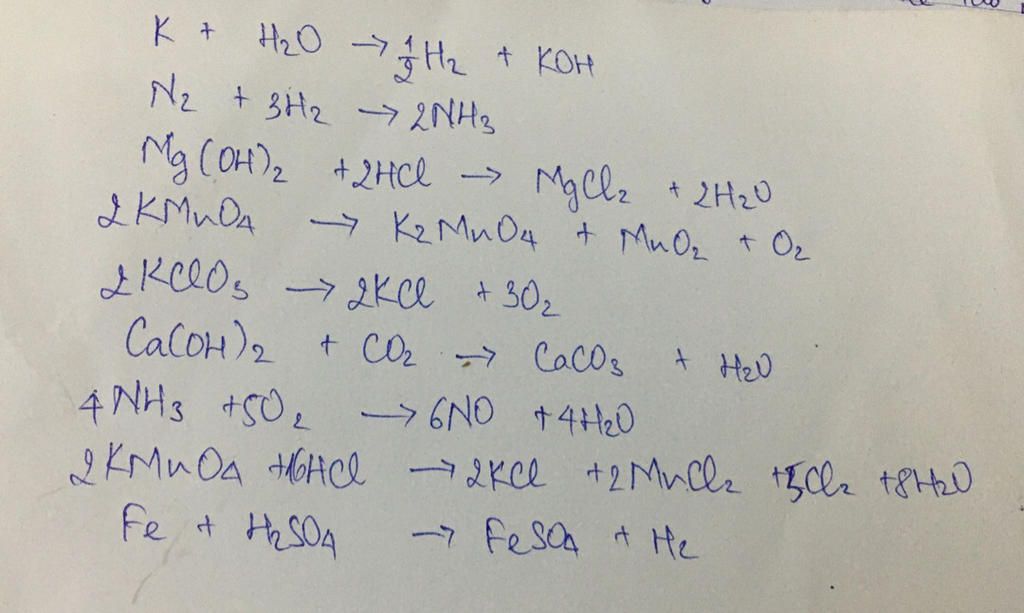 K + H2O → 1/2 H2 + KOH
N2 + 3H2 → 2NH3
Mg(OH)2 + 2HCl → MgCl2 + 2H2O
2KMnO4 → K2MnO4 + MnO2 + O2
2KClO3 → 2KCl + 3O2
Ca(OH)2 + CO2 → CaCO3 + H2O
4NH3 + 5O2 → 6NO + 4H2O
2KMnO4 + 16HCl → 2KCl + 2MnCl2 + 5Cl2 + 8H2O
Fe + H2SO4 → FeSO4 + H2